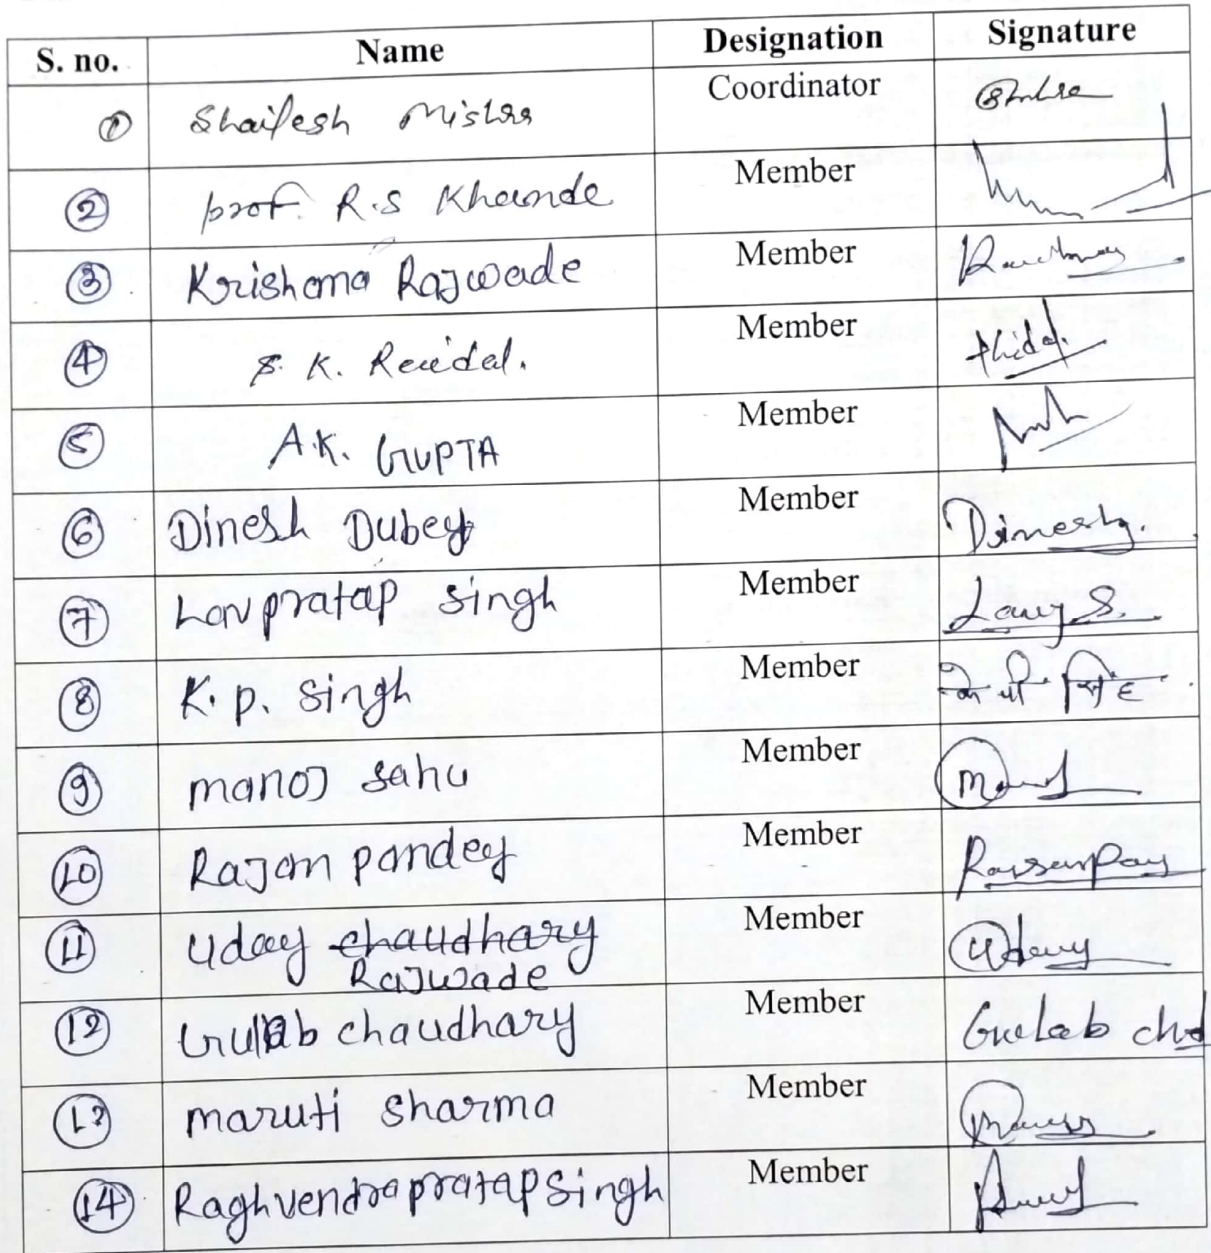 S. no. Name Designation Signature
1 Shailesh Mishra Coordinator
2 prof. R.S Khande Member
3 Krishama Rajwade Member
4 S. K. Member
5 A.K. GUPTA Member
6 Dinesh Dubey Member Dinesh
7 Lovpratap singh Member
8 K. p. singh Member
9 manoj sahu Member
10 Rajan pandey Member
11 Uday chaudhary Member Uday
Rajwade
12 Gulab chaudhary Member Gulab chd
13 maruti sharma Member
14 Raghvendra pratap singh Member